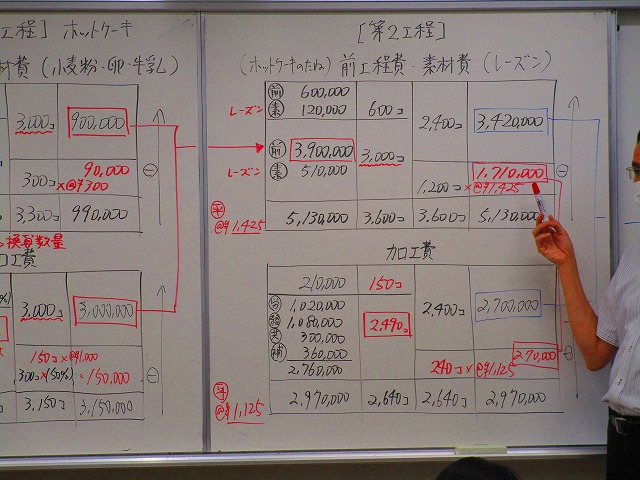 工程] ホットケーキ
材費 (小麦粉・卵・牛乳)
3,000コ 900,000
90,000
300コ ×@¥300
3,300コ 990,000
換算数量
加工費
3,000コ 3,000,000
150コ×@¥1,000
300コ×(50%) =150,000
3,150コ 3,150,000
[第2工程]
(ホットケーキのたね) 前工程費・素材費 (レーズン)
前 600,000
レーズン 素 120,000 600コ
2,400コ 3,420,000
前 3,900,000
3,000コ
レーズン 素 510,000
1,710,000
1,200コ ×@¥1,425
平 @¥1,425
5,130,000 3,600コ 3,600コ 5,130,000
加工費
210,000 150コ
1,020,000
1,080,000
300,000
360,000
2,760,000
2,490コ
2,400コ 2,700,000
270,000
240コ×@¥1,125
平 @¥1,125
2,970,000 2,640コ 2,640コ 2,970,000